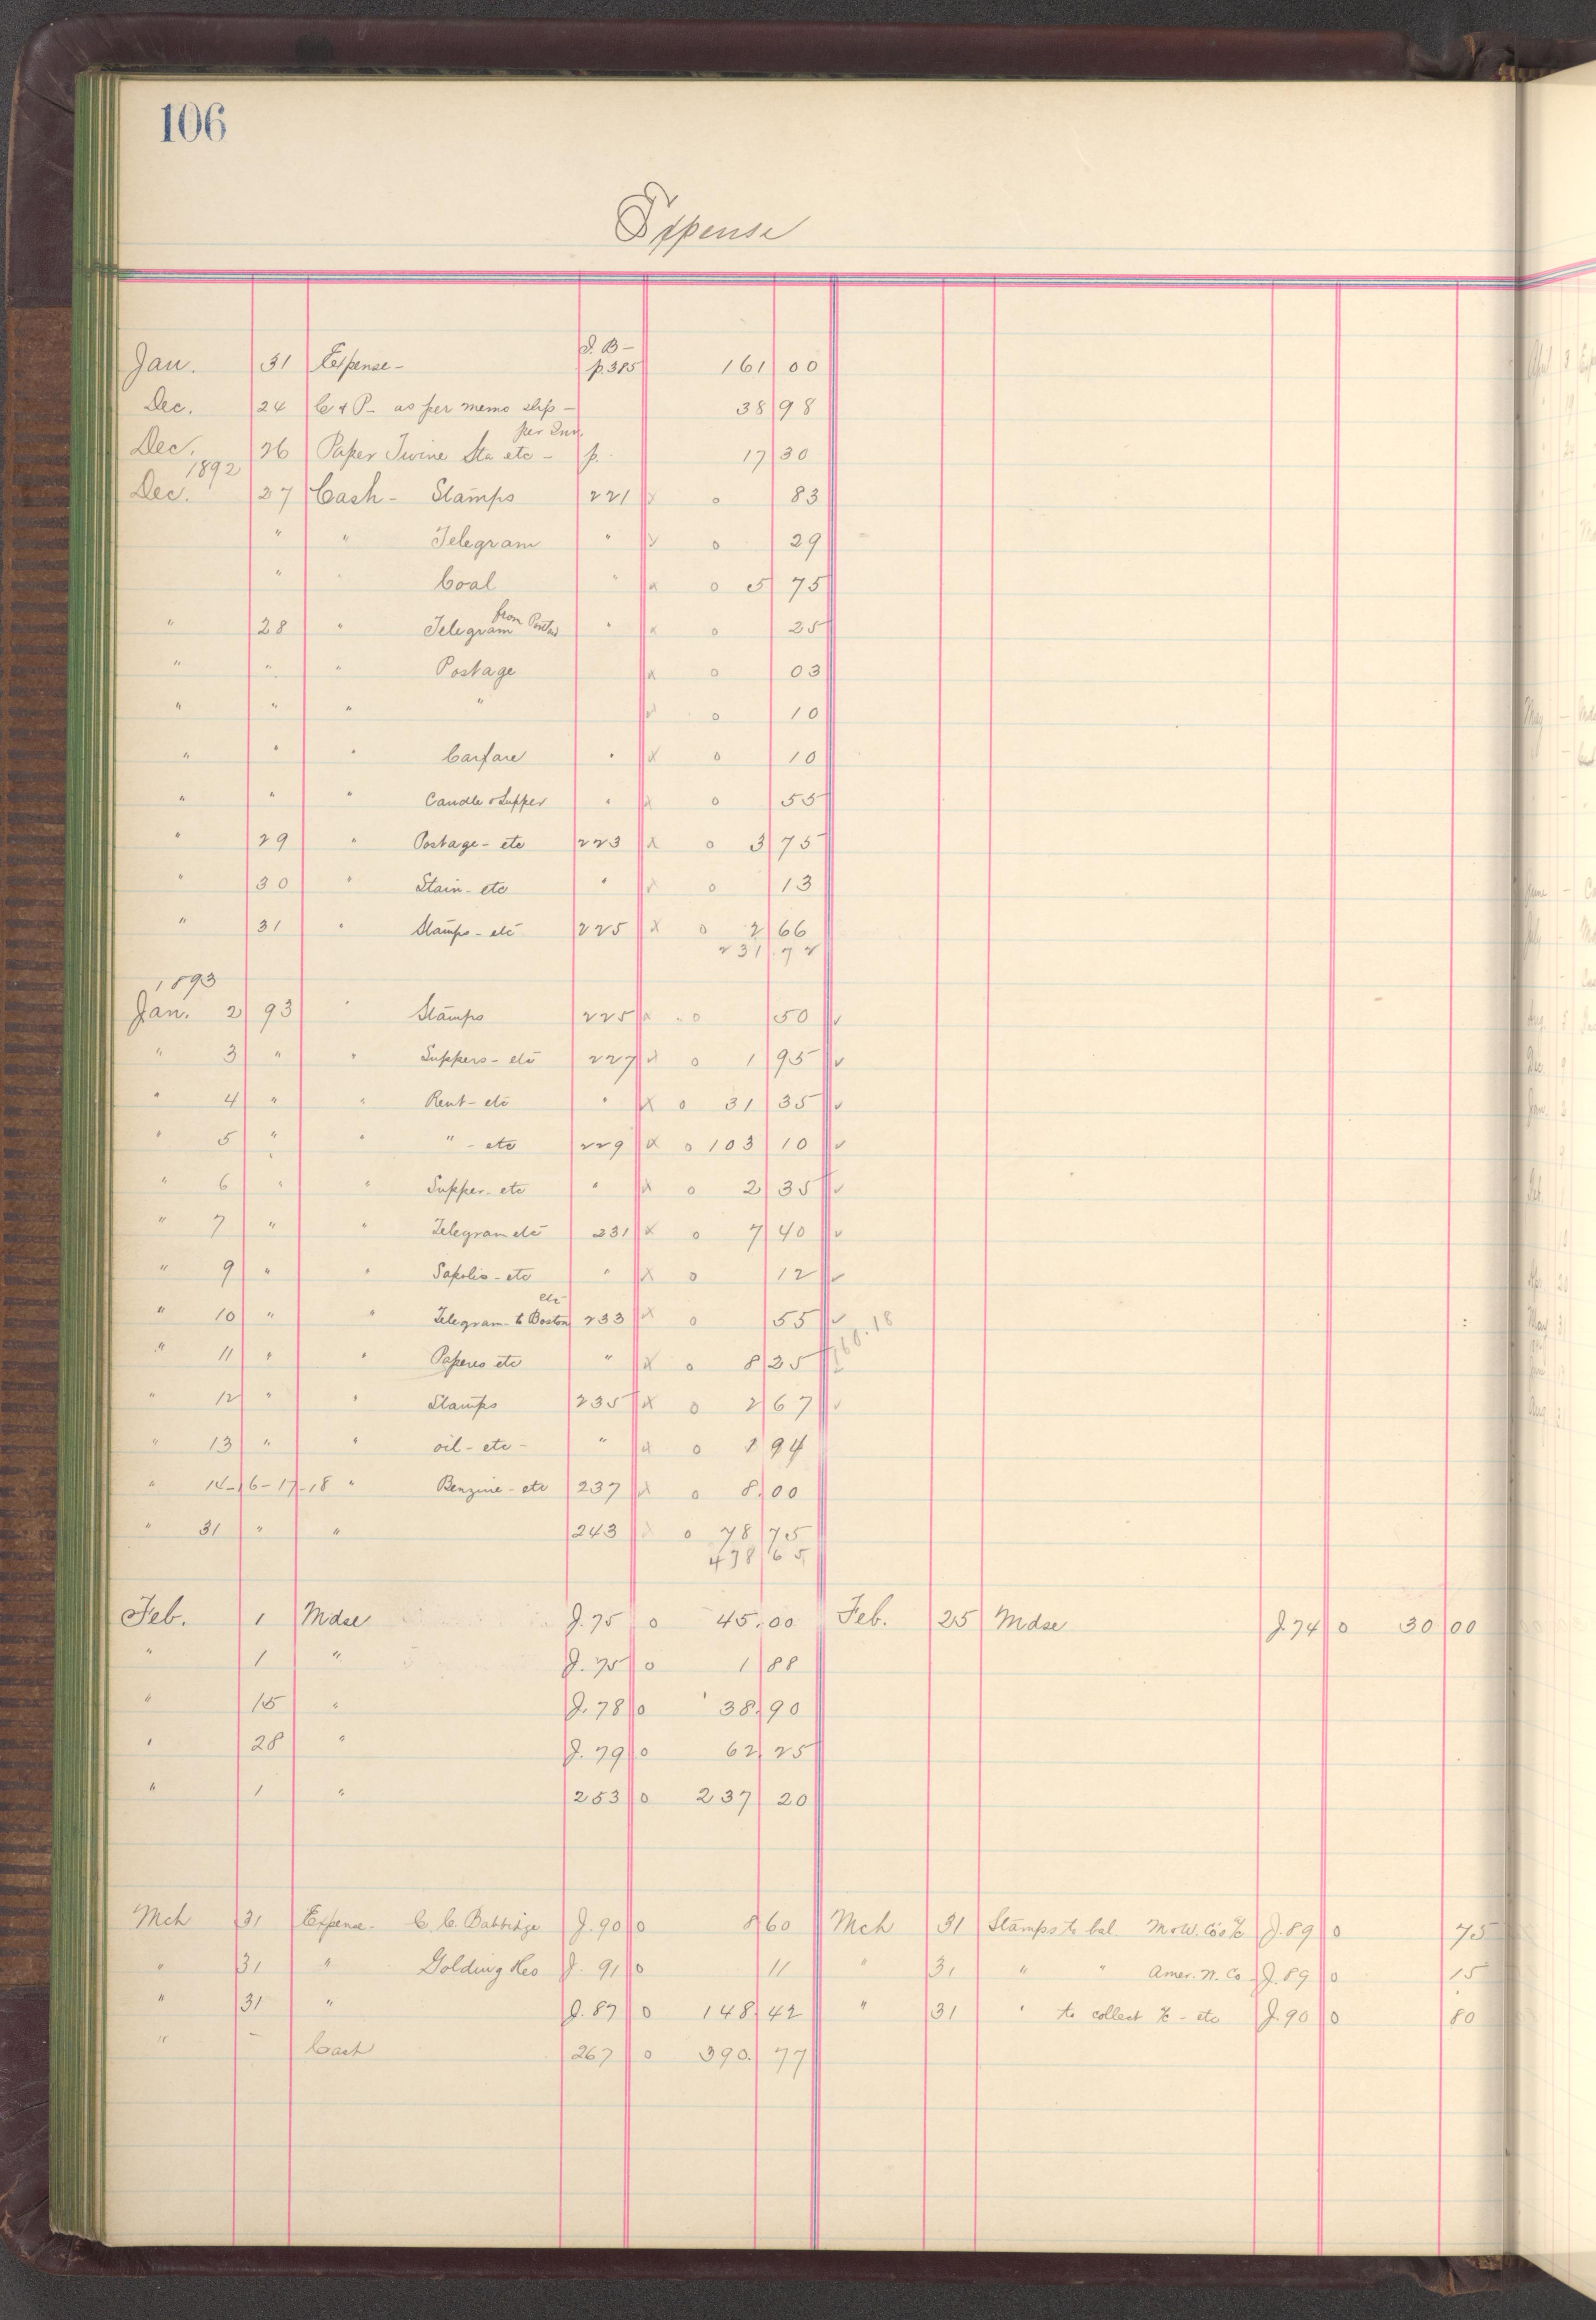 106
Expense
Jan. 31 Expense - J. B - p. 385 161 00
Dec. 24 C & P - as per memo slip - 38 98
Dec. 26 Paper Twine Sta etc - per Inv. p. 17 30
1892
Dec. 27 Cash - Stamps 221 x o 83
" " Telegram " x o 29
" " Coal " x o 5 75
" 28 " Telegram from " x o 25
" " " Postage x o 03
" " " " x o 10
" " " Carfare " x o 10
" " " Candle & Supper " x o 55
" 29 " Postage - etc 223 x o 3 75
" 30 " Stain - etc " x o 13
" 31 " Stamps - etc 225 x o 2 66
231.72
1893
Jan. 2 93 " Stamps 225 x o 50 ✓
" 3 " " Suppers - etc 227 x o 1 95 ✓
" 4 " " Rent - etc " x o 31 35 ✓
" 5 " " " - etc 229 x o 103 10 ✓
" 6 " " Supper - etc " x o 2 35 ✓
" 7 " " Telegram etc 231 x o 7 40 ✓
" 9 " " Sapolio - etc " x o 12 ✓
" 10 " " Telegram - to Boston etc 233 x o 55 ✓
160.18
" 11 " " Papers etc " x o 8 25 ✓
" 12 " " Stamps 235 x o 2 67 ✓
" 13 " " oil - etc - " x o 1 94
" 14-16-17-18 " Benzine - etc 237 x o 8.00
" 31 " " 243 x o 78 75
478 65
Feb. 1 Mdse J. 75 o 45.00 Feb. 25 Mdse J. 74 o 30 00
" 1 " J. 75 o 1 88
" 15 " J. 78 o 38.90
" 28 " J. 79 o 62 25
" 1 " 253 o 237 20
Mch 31 Expense - C. C. Babbidge J. 90 o 8 60 Mch 31 Stamps to bal M & W. Co's % J. 89 o 75
" 31 " Golding & Co J. 91 o 11 " 31 " " Amer. N. Co J. 89 o 15
" 31 " J. 87 o 148.42 " 31 " to collect % - etc J. 90 o 80
" - Cash 267 o 390. 77